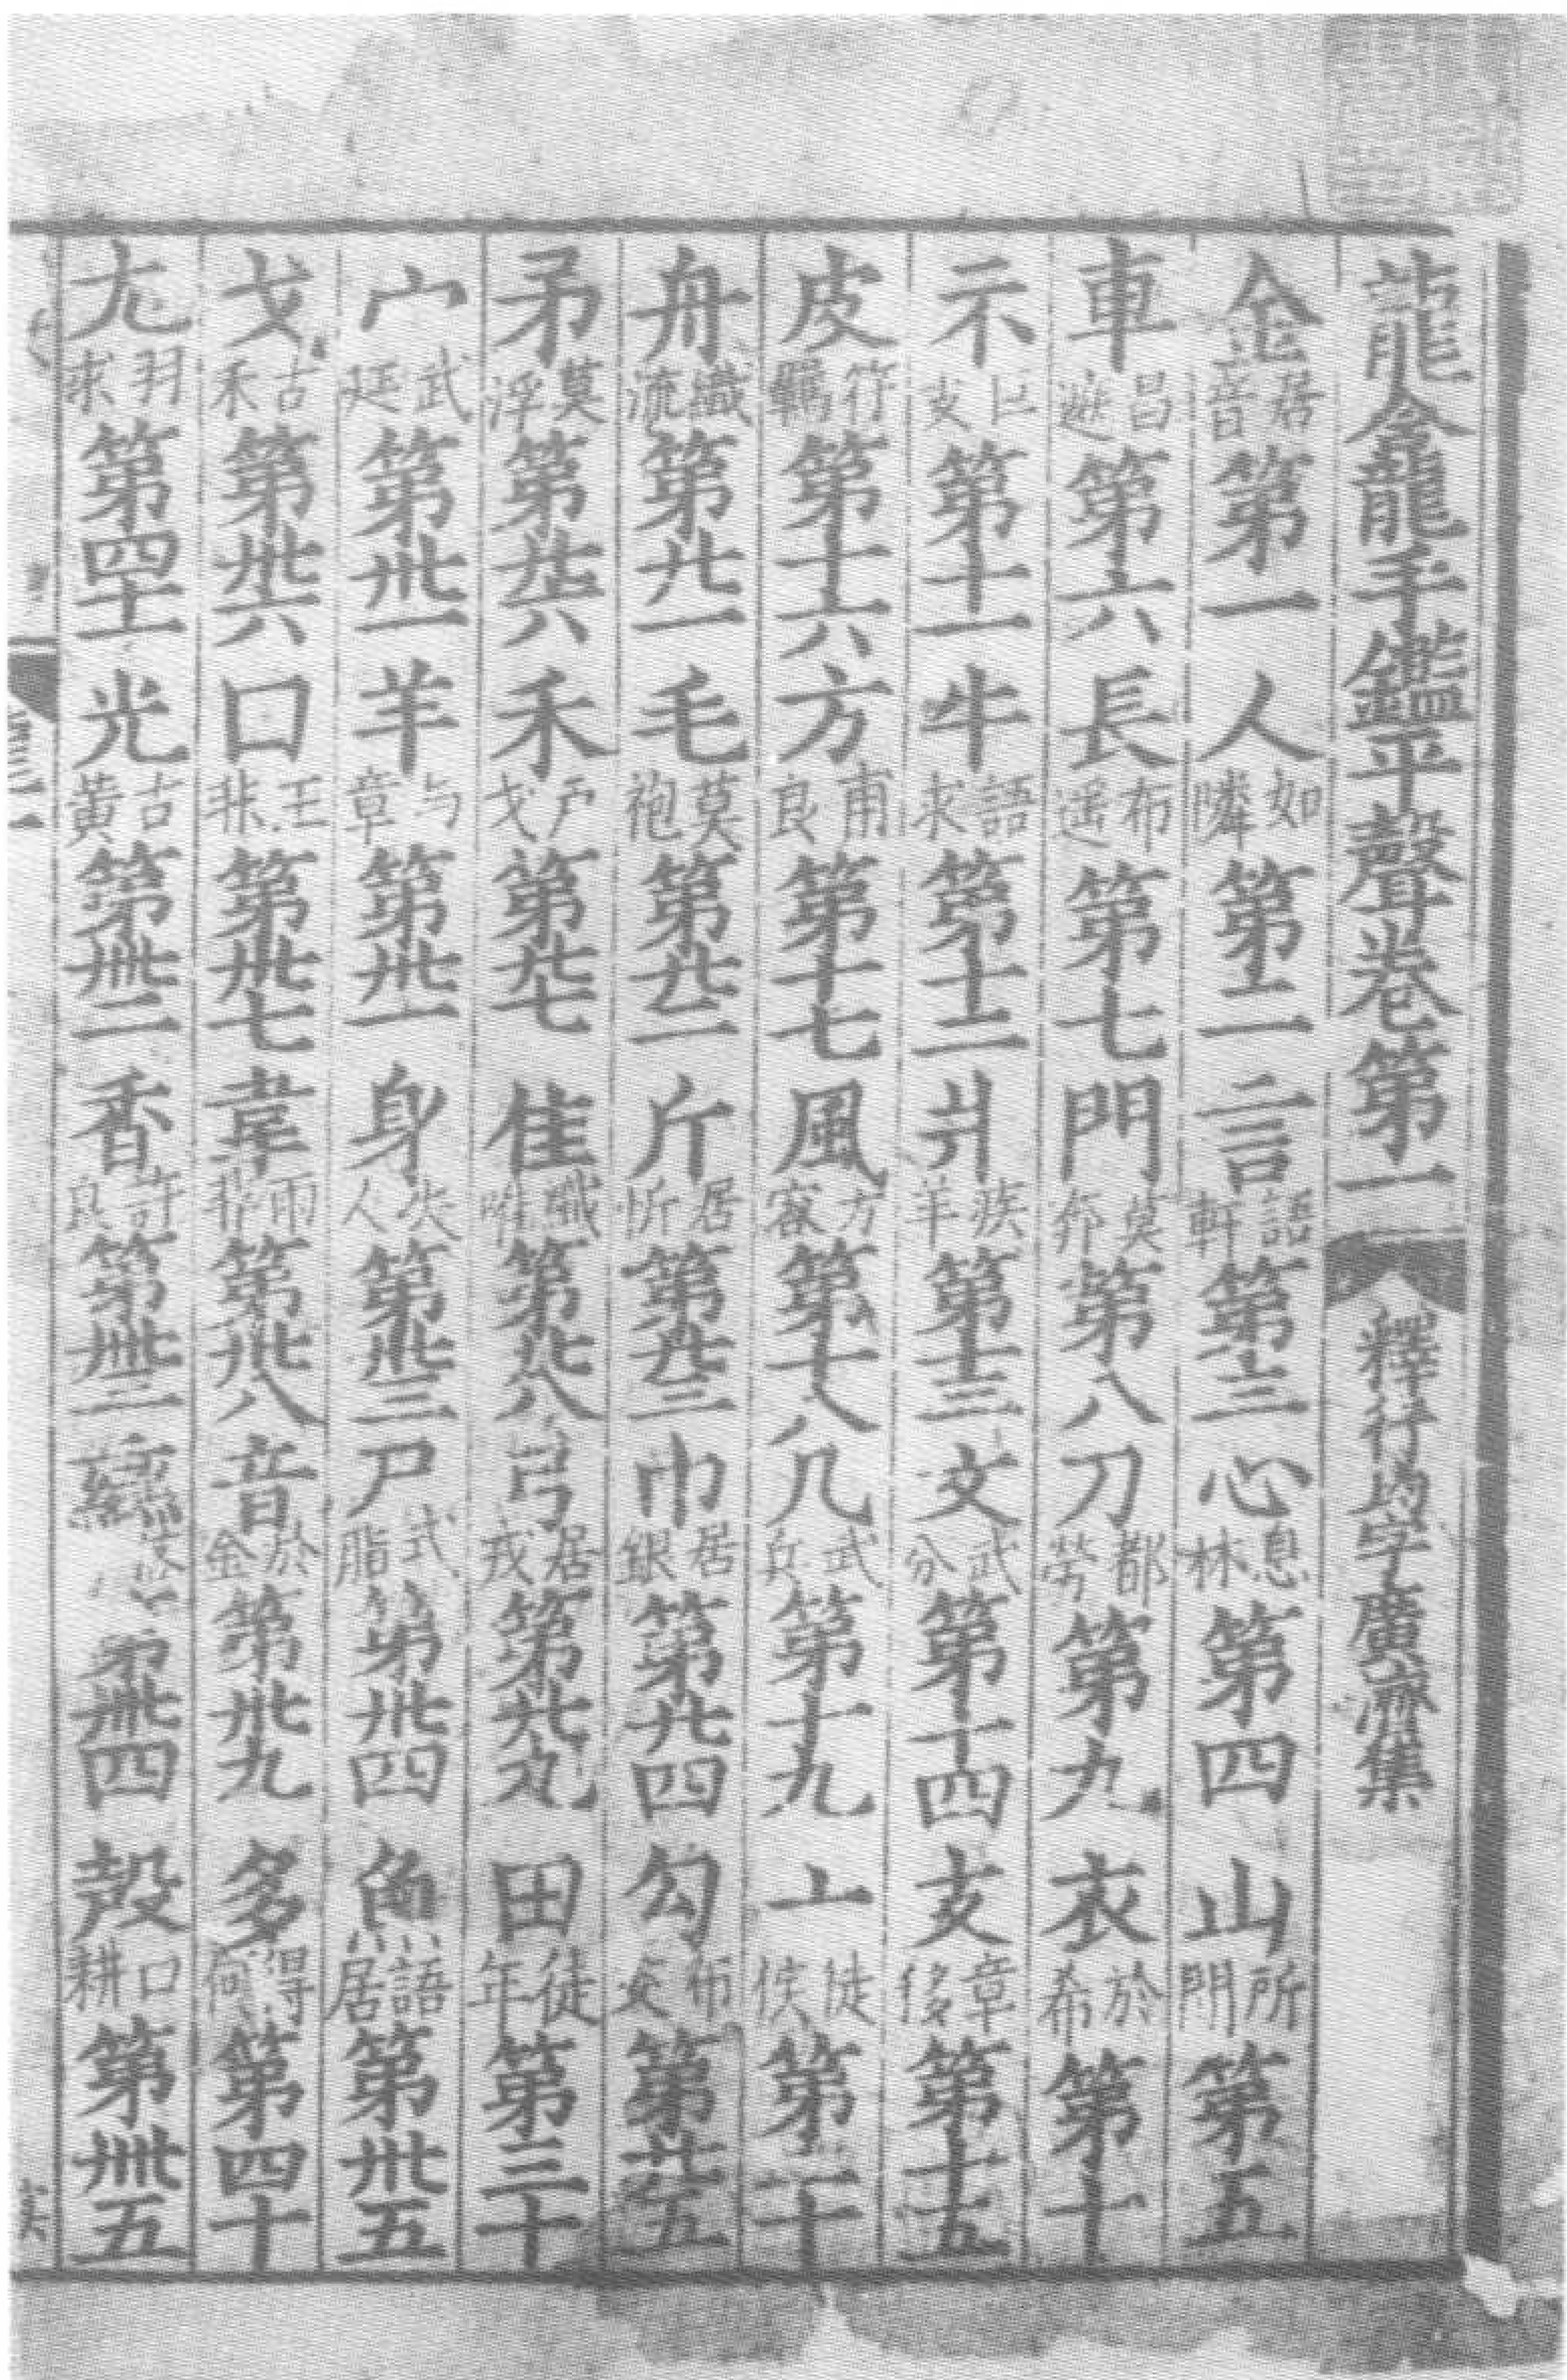 龍龕手鑑平聲卷第一 釋行均字廣濟集
金居音第一 人如隣第二 言語軒第三 心息林第四 山所閒第五
車昌遮第六 長布遥第七 門莫奔第八 刀都勞第九 衣於希第十
示巨支第十一 牛語求第十二 爿疾羊第十三 文武分第十四 支章移第十五
皮符羈第十六 方甫良第十七 風方容第十八 几武兵第十九 亠徒侯第二十
舟織流第廿一 毛莫袍第廿二 斤居忻第廿三 巾居銀第廿四 勹布交第廿五
矛莫浮第廿六 禾戶戈第廿七 隹職唯第廿八 弓居戎第廿九 田徒年第三十
宀武延第卅一 羊与章第卅二 身失人第卅三 尸式脂第卅四 魚語居第卅五
戈古禾第卅六 囗王非第卅七 韋雨非第卅八 音於金第卅九 多得何第四十
尢羽求第四十一 光古黄第卌二 香許良第卌三 第卌四 殸口耕第卌五